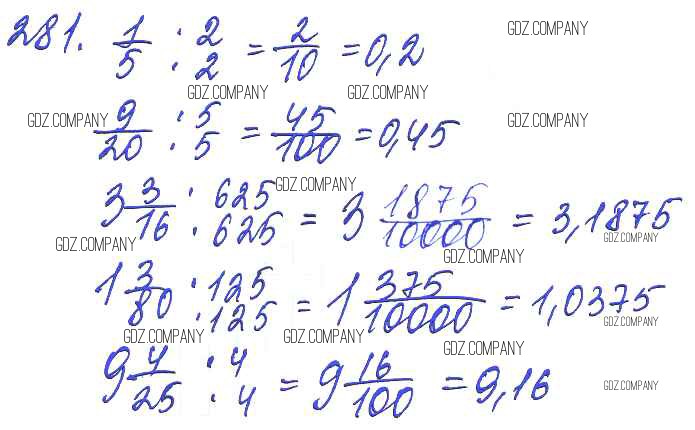 281. 1/5 · 2/2 = 2/10 = 0,2
GDZ.COMPANY
GDZ.COMPANY GDZ.COMPANY
GDZ.COMPANY 9/20 · 5/5 = 45/100 = 0,45 GDZ.COMPANY
GDZ.COMPANY
3 3/16 · 625/625 = 3 1875/10000 = 3,1875
GDZ.COMPANY GDZ.COMPANY
GDZ.COMPANY
1 3/80 · 125/125 = 1 375/10000 = 1,0375
GDZ.COMPANY
GDZ.COMPANY GDZ.COMPANY GDZ.COMPANY
9 4/25 · 4/4 = 9 16/100 = 9,16
GDZ.COMPANY